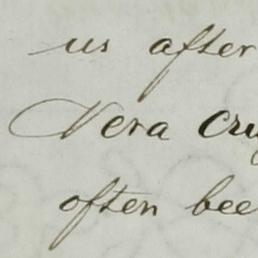 us after
Vera Cru
often bee